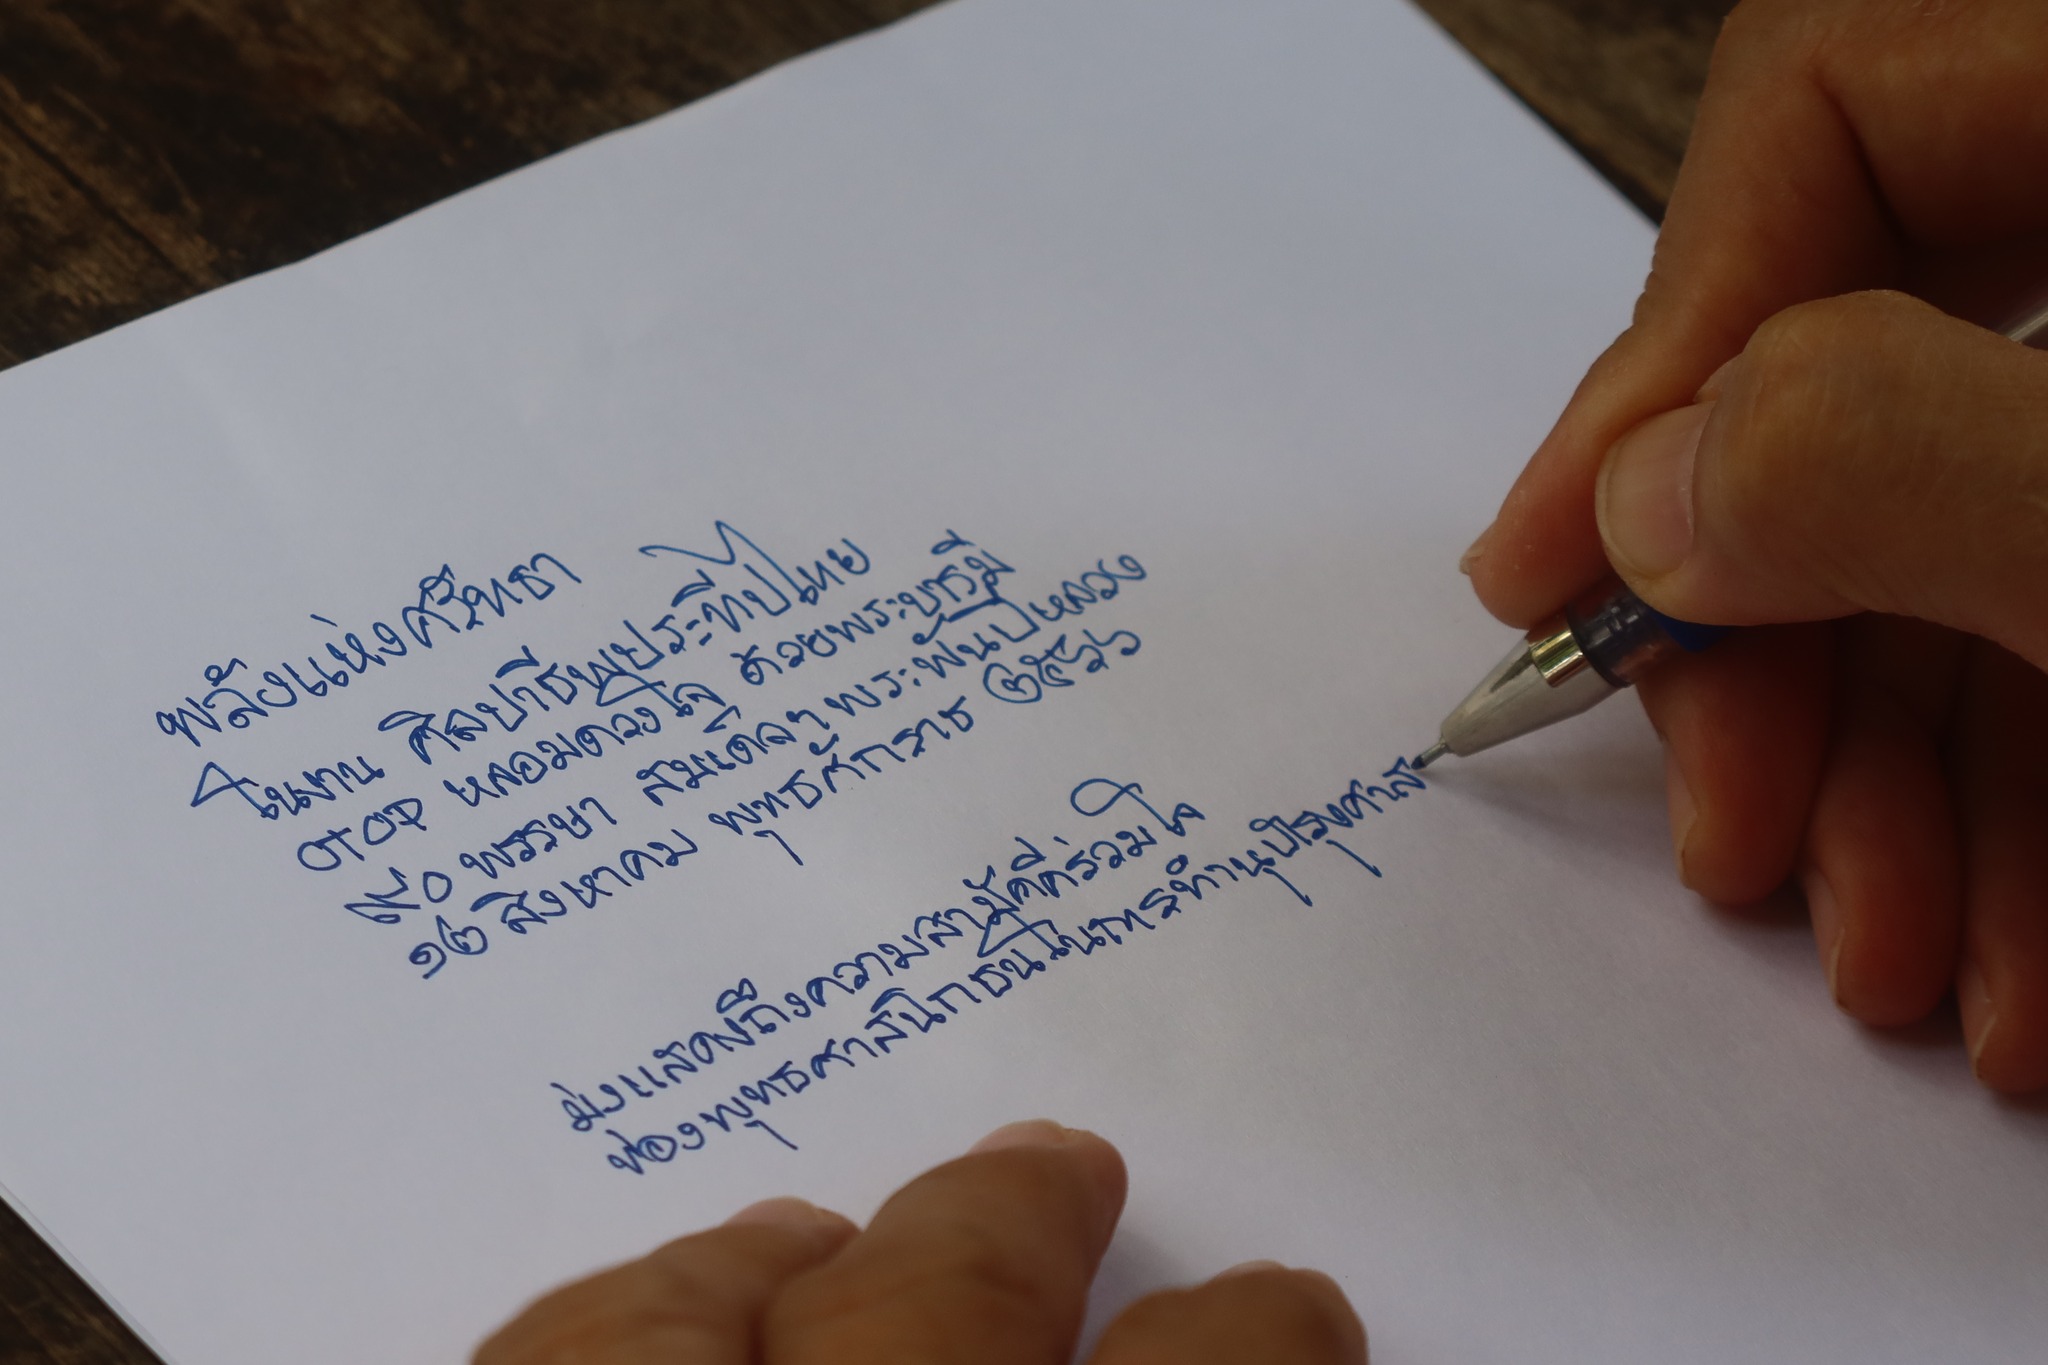 พลังแห่งศรัทธา
ในงาน ศิลปาชีพประทีปไทย
OTOP หลอมดวงใจ ด้วยพระบารมี
๙๐ พรรษา สมเด็จฯ พระพันปีหลวง
๑๒ สิงหาคม พุทธศักราช ๒๕๖๖
มุ่งแสดงถึงความสามัคคีร่วมใจ
ของพุทธศาสนิกชนในการทำนุบำรุงศาส